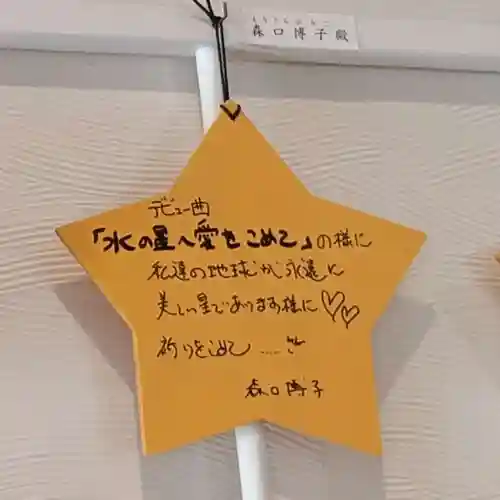 もりぐちひろこ
森口博子殿
デビュー曲
「水の星へ愛をこめて」の様に
私達の地球が永遠に
美しい星であります様に♡♡
祈りをこめて……
森口博子